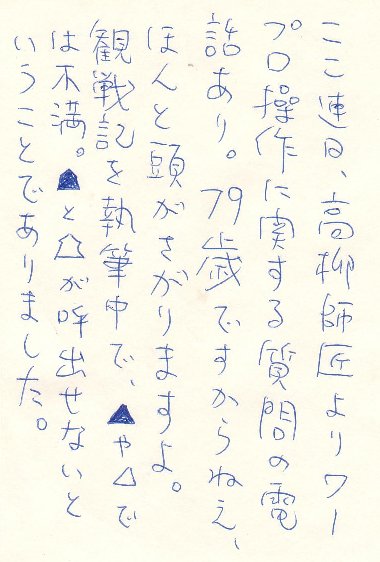 ここ連日、高柳師匠よりワー
プロ操作に関する質問の電
話あり。79歳ですからねえ、
ほんと頭がさがりますよ。
観戦記を執筆中で、▲や△で
は不満。☗と☖が呼出せないと
いうことでありました。